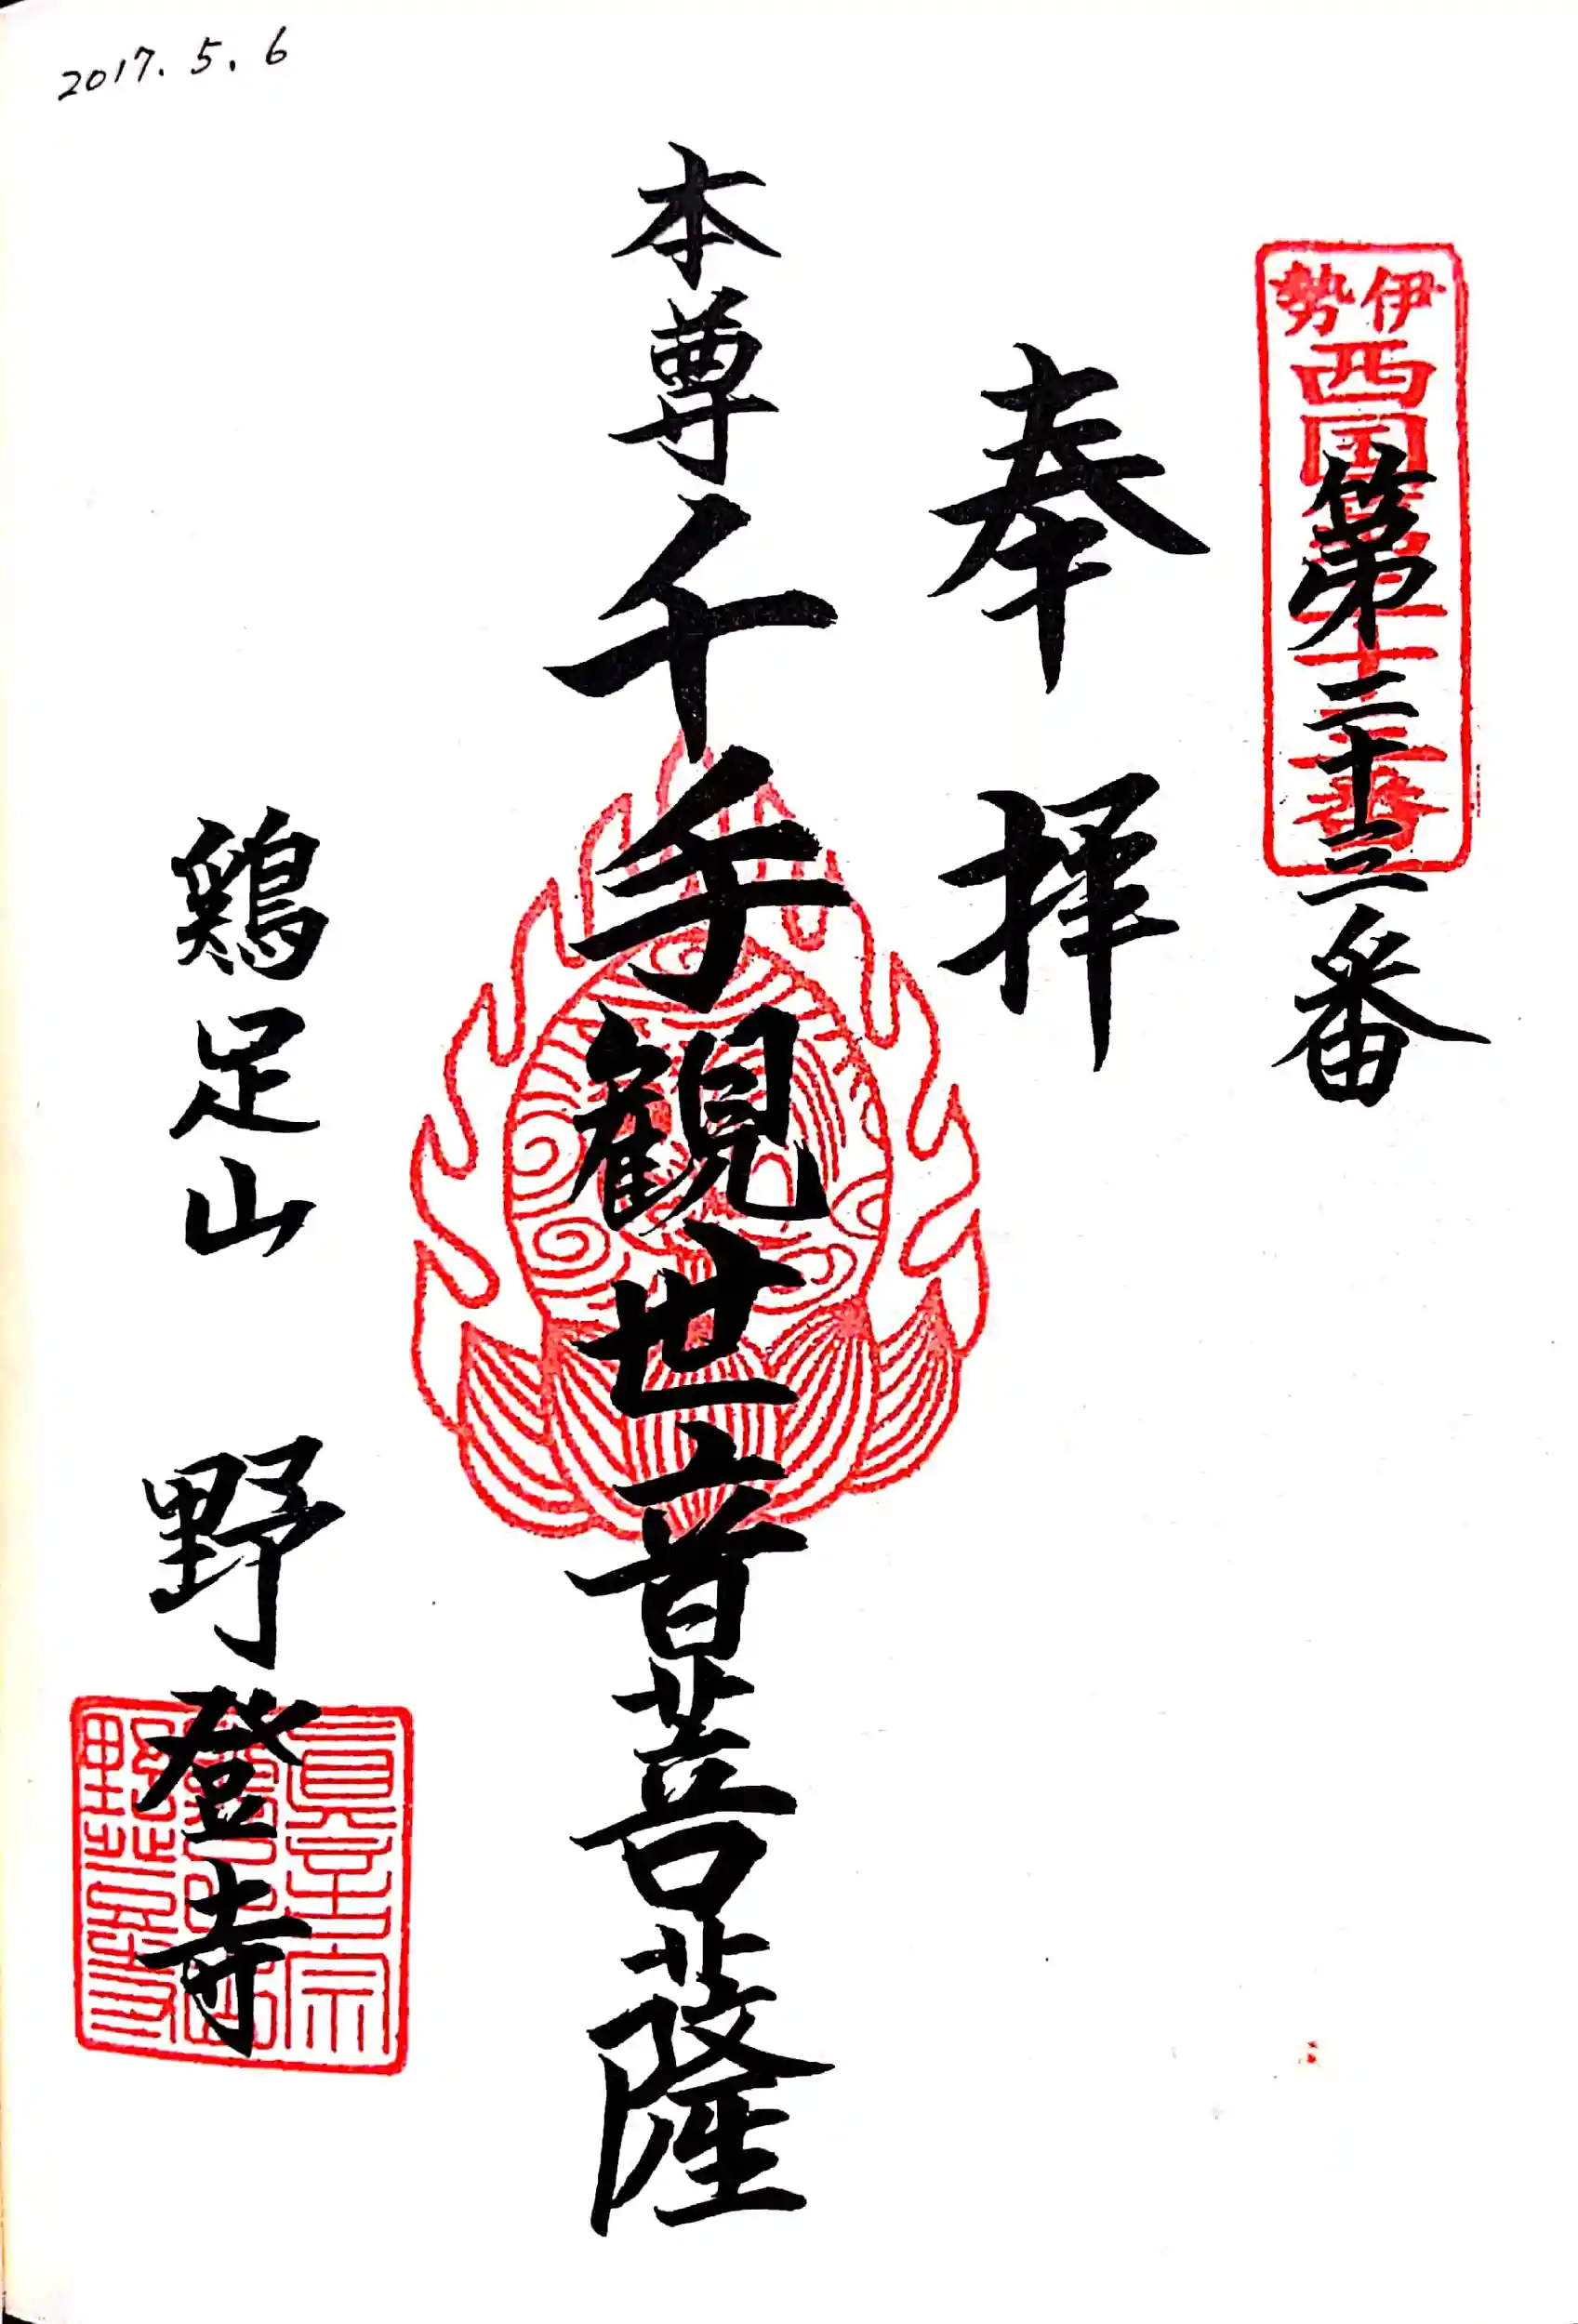 2017.5.6
伊勢
西国第二十三番
第二十三番
奉拝
本尊千手観世音菩薩
鶏足山 野登寺
眞言宗
野登寺